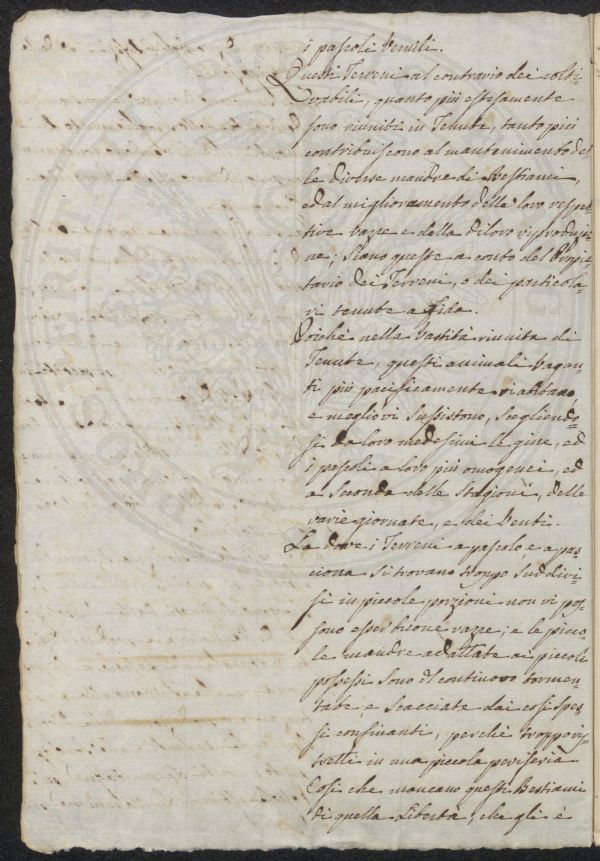 i pascoli Vernili.
Questi Terreni al contrario dei colti-
vabili, quanto più estesamente
sono riuniti in Tenute, tanto più
contribuiscono al mantenimento del
le diverse mandre di Bestiami,
ed al miglioramento delle loro respet-
tive razze e della di loro riproduzio-
ne; siano queste a conto del Proprie-
tario dei Terreni, o dei particola-
ri tenute a fida.
Poiche nella Vastità riunita di
Tenute, questi animali Vagan-
ti più pacificamente vi abitano
e meglio vi sussistono, scegliendo-
si da loro medesimi le gire, ed
i pascoli a loro più omogenei, ed
a seconda delle Stagioni, delle
varie giornate, e dei Venti.
La dove i Terreni a pascolo, e a pas-
ciona si trovano troppo suddivi-
si in piccole porzioni non vi pos-
sono esser buone razze; e le picco
le mandre adattate ai piccoli
possessi sono di continovo tormen-
tate, e scacciate dai così spes-
si confinanti, perchè troppo ris-
tretti in una piccola periferia
Così che mancano questi Bestiami
di quella Libertà, che gli è